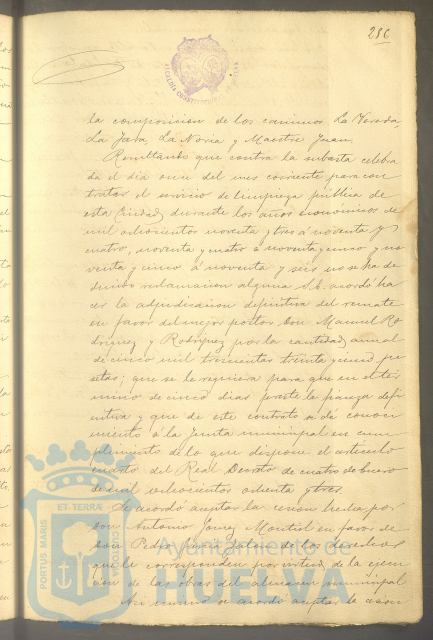 286
la composicion de los caminos La Vereda,
La Jara, La Noria y Maestre Juan.
Resultando que contra la subasta celebra
da el dia once del mes corriente para con
tratar el servicio de limpieza pública de
esta Ciudad durante los años económicos de
mil ochocientos noventa y tres á noventa y
cuatro, noventa y cuatro á noventa y cinco y no
venta y cinco á noventa y seis no se ha de
ducido reclamacion alguna S.E. acordó ha
cer la adjudicacion definitiva del remate
en favor del mejor postor Don Manuel Ro
driguez y Rodriguez por la cantidad anual
de cinco mil trescientas treinta y cinco pe
setas; que se le requiera para que en el ter
mino de cinco dias preste la fianza defi
nitiva y que de este contrato se dé conoci
miento á la Junta municipal en cum
plimiento de lo que dispone el articulo
cuarto del Real Decreto de cuatro de Enero
de mil ochocientos ochenta y tres.
Se acordó aceptar la cesion hecha por
Don Antonio Montiel en favor de
Don Pedro de los derechos
que le corresponden por virtud de la ejecu
cion de las obras del almacen municipal
Asi mismo se acordó aceptar la cesion
PORTUS MARIS ET TERRÆ CUSTODIA
Ayuntamiento de
HUELVA